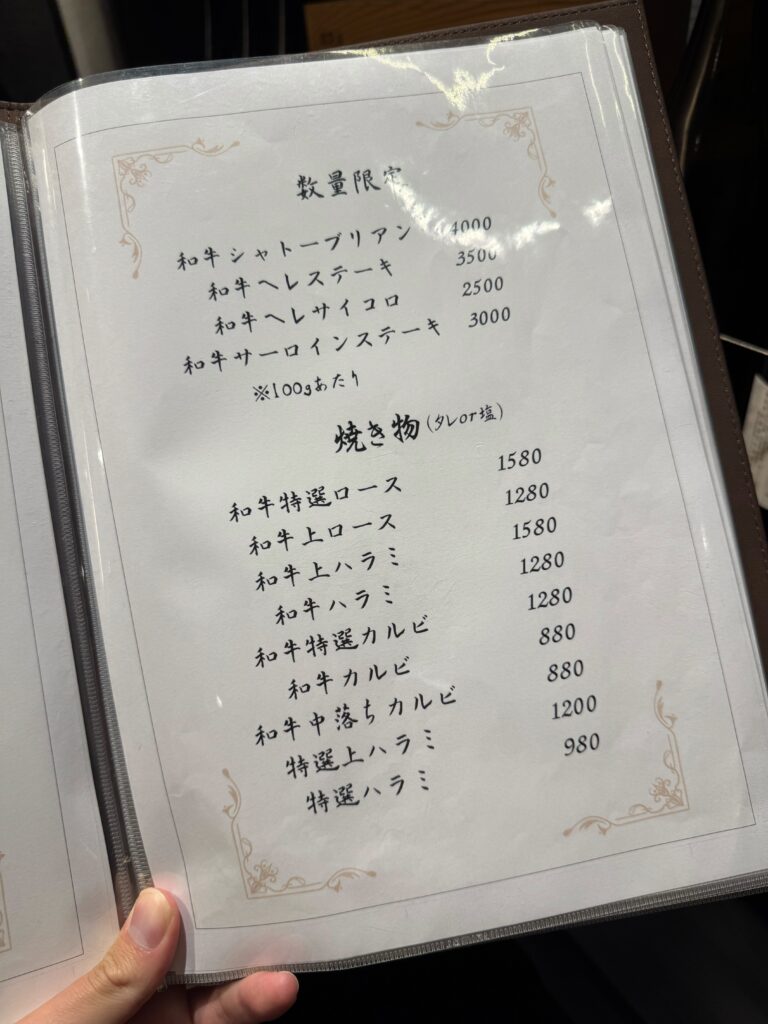 数量限定
和牛シャトーブリアン 4000
和牛ヘレステーキ 3500
和牛ヘレサイコロ 2500
和牛サーロインステーキ 3000
※100gあたり
焼き物(タレor塩)
和牛特選ロース 1580
和牛上ロース 1280
和牛上ハラミ 1580
和牛ハラミ 1280
和牛特選カルビ 1280
和牛カルビ 880
和牛中落ちカルビ 880
特選上ハラミ 1200
特選ハラミ 980